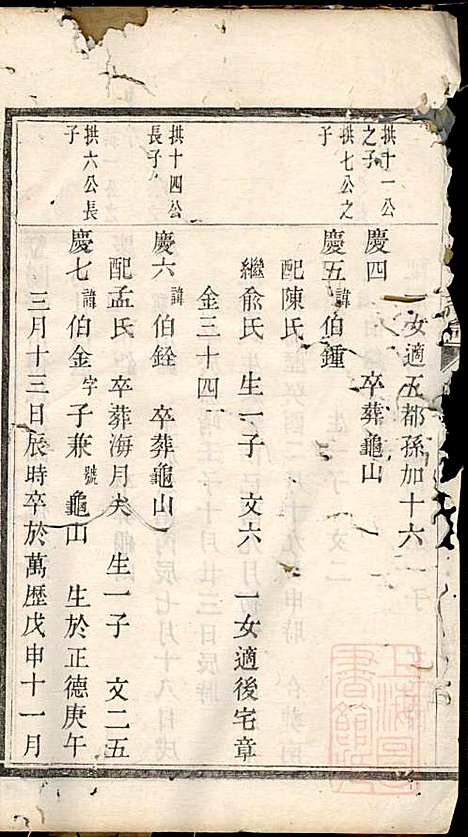 一女適五都孫加十六
拱十一公
之子
慶四
卒葬龜山
拱七公之
子
慶五 諱 伯鍾
配陳氏
繼兪氏 生一子 文六 一女適後宅章
金三十四
拱十四公
長子
慶六 諱 伯銓 卒葬龜山
配孟氏 卒葬海月尖 生一子 文二五
拱六公長
子
慶七 諱 伯金 字 子兼 號 龜山 生於正德庚午
三月十三日辰時卒於萬歷戊申十一月